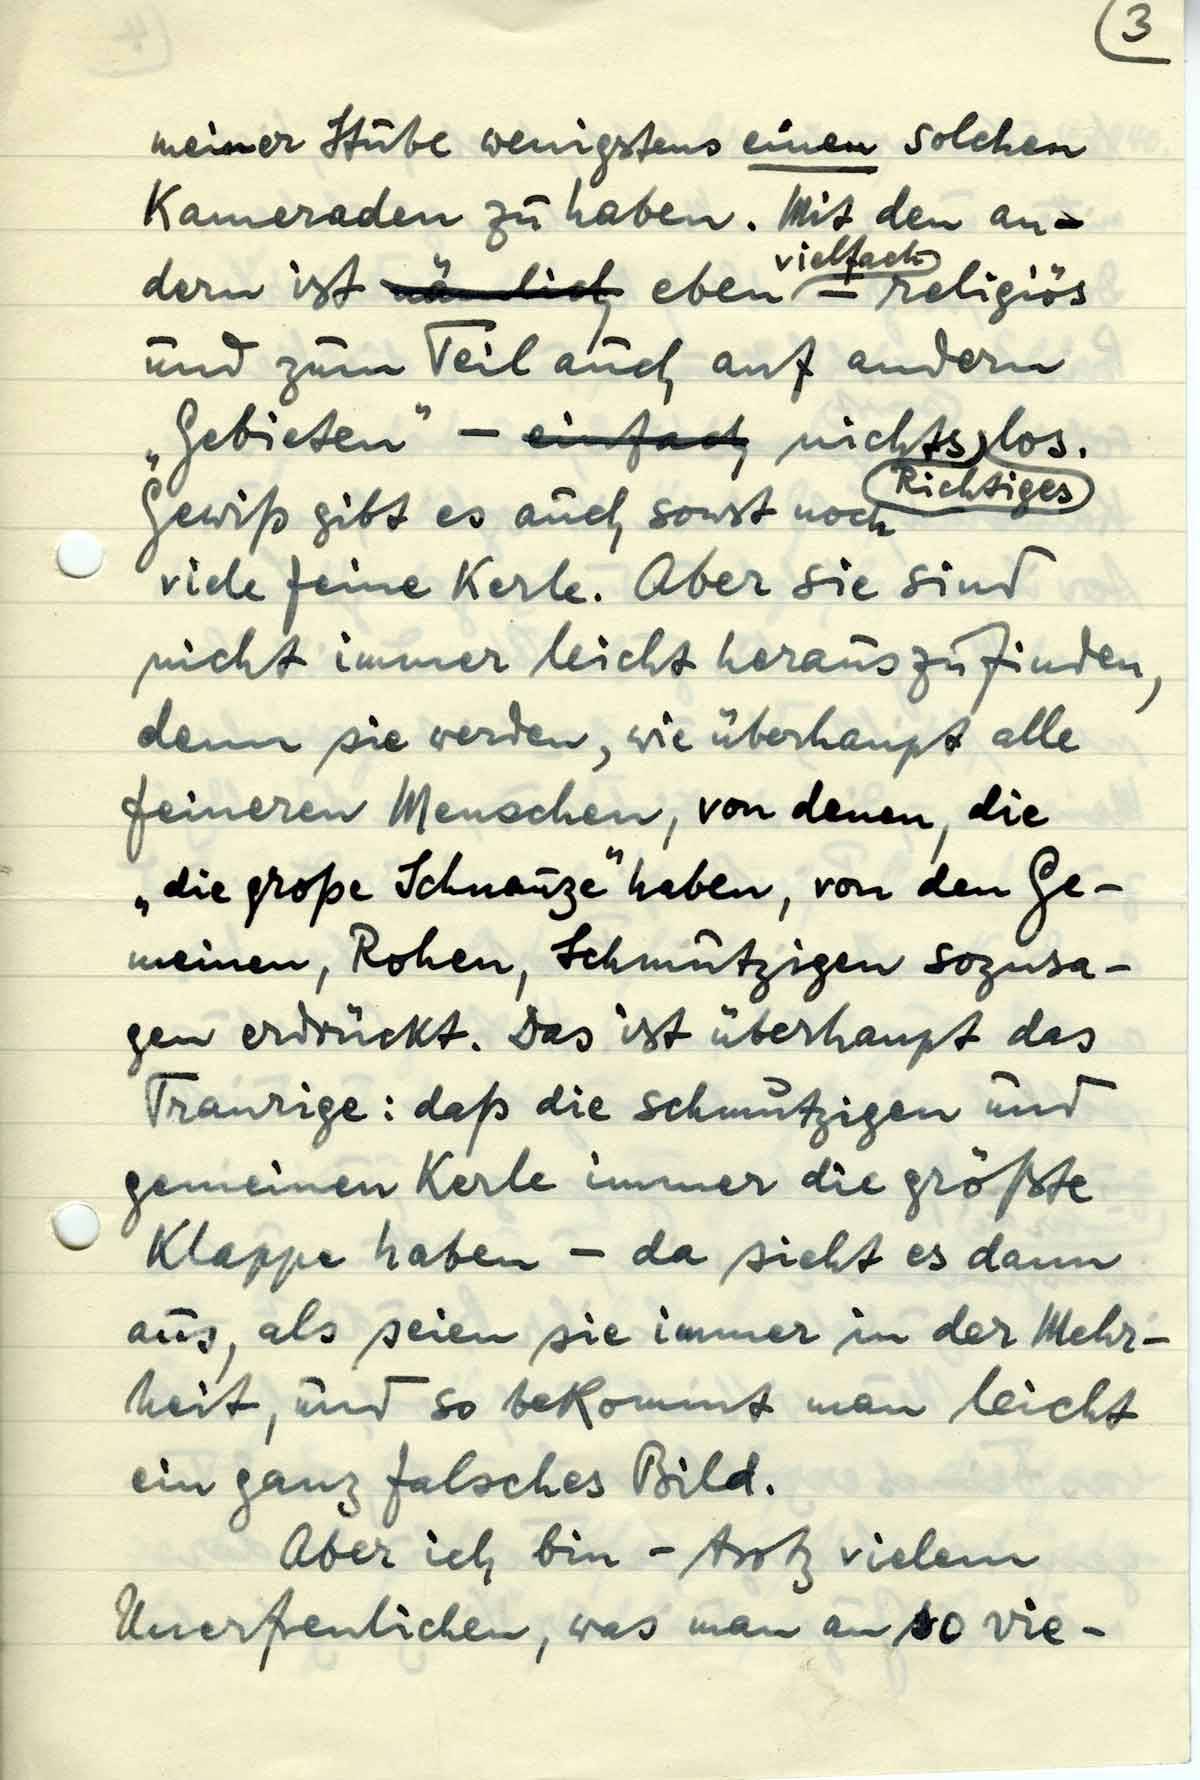 3
meiner Stube wenigstens einen solchen
Kameraden zu haben. Mit den an-
vielfach
dern ist nämlich eben – religiös
und zum Teil auch auf andern
„Gebieten" – einfach nichts los.
Richtiges
Gewiß gibt es auch sonst noch
viele feine Kerle. Aber sie sind
nicht immer leicht herauszufinden,
denn sie werden, wie überhaupt alle
feineren Menschen, von denen, die
„die große Schnauze" haben, von den Ge-
meinen, Rohen, Schmutzigen sozusa-
gen erdrückt. Das ist überhaupt das
Traurige: daß die schmutzigen und
gemeinen Kerle immer die größte
Klappe haben – da sieht es dann
aus, als seien sie immer in der Mehr-
heit, und so bekommt man leicht
ein ganz falsches Bild.
Aber ich bin – trotz vielem
Unerfreulichen, was man an so vie-